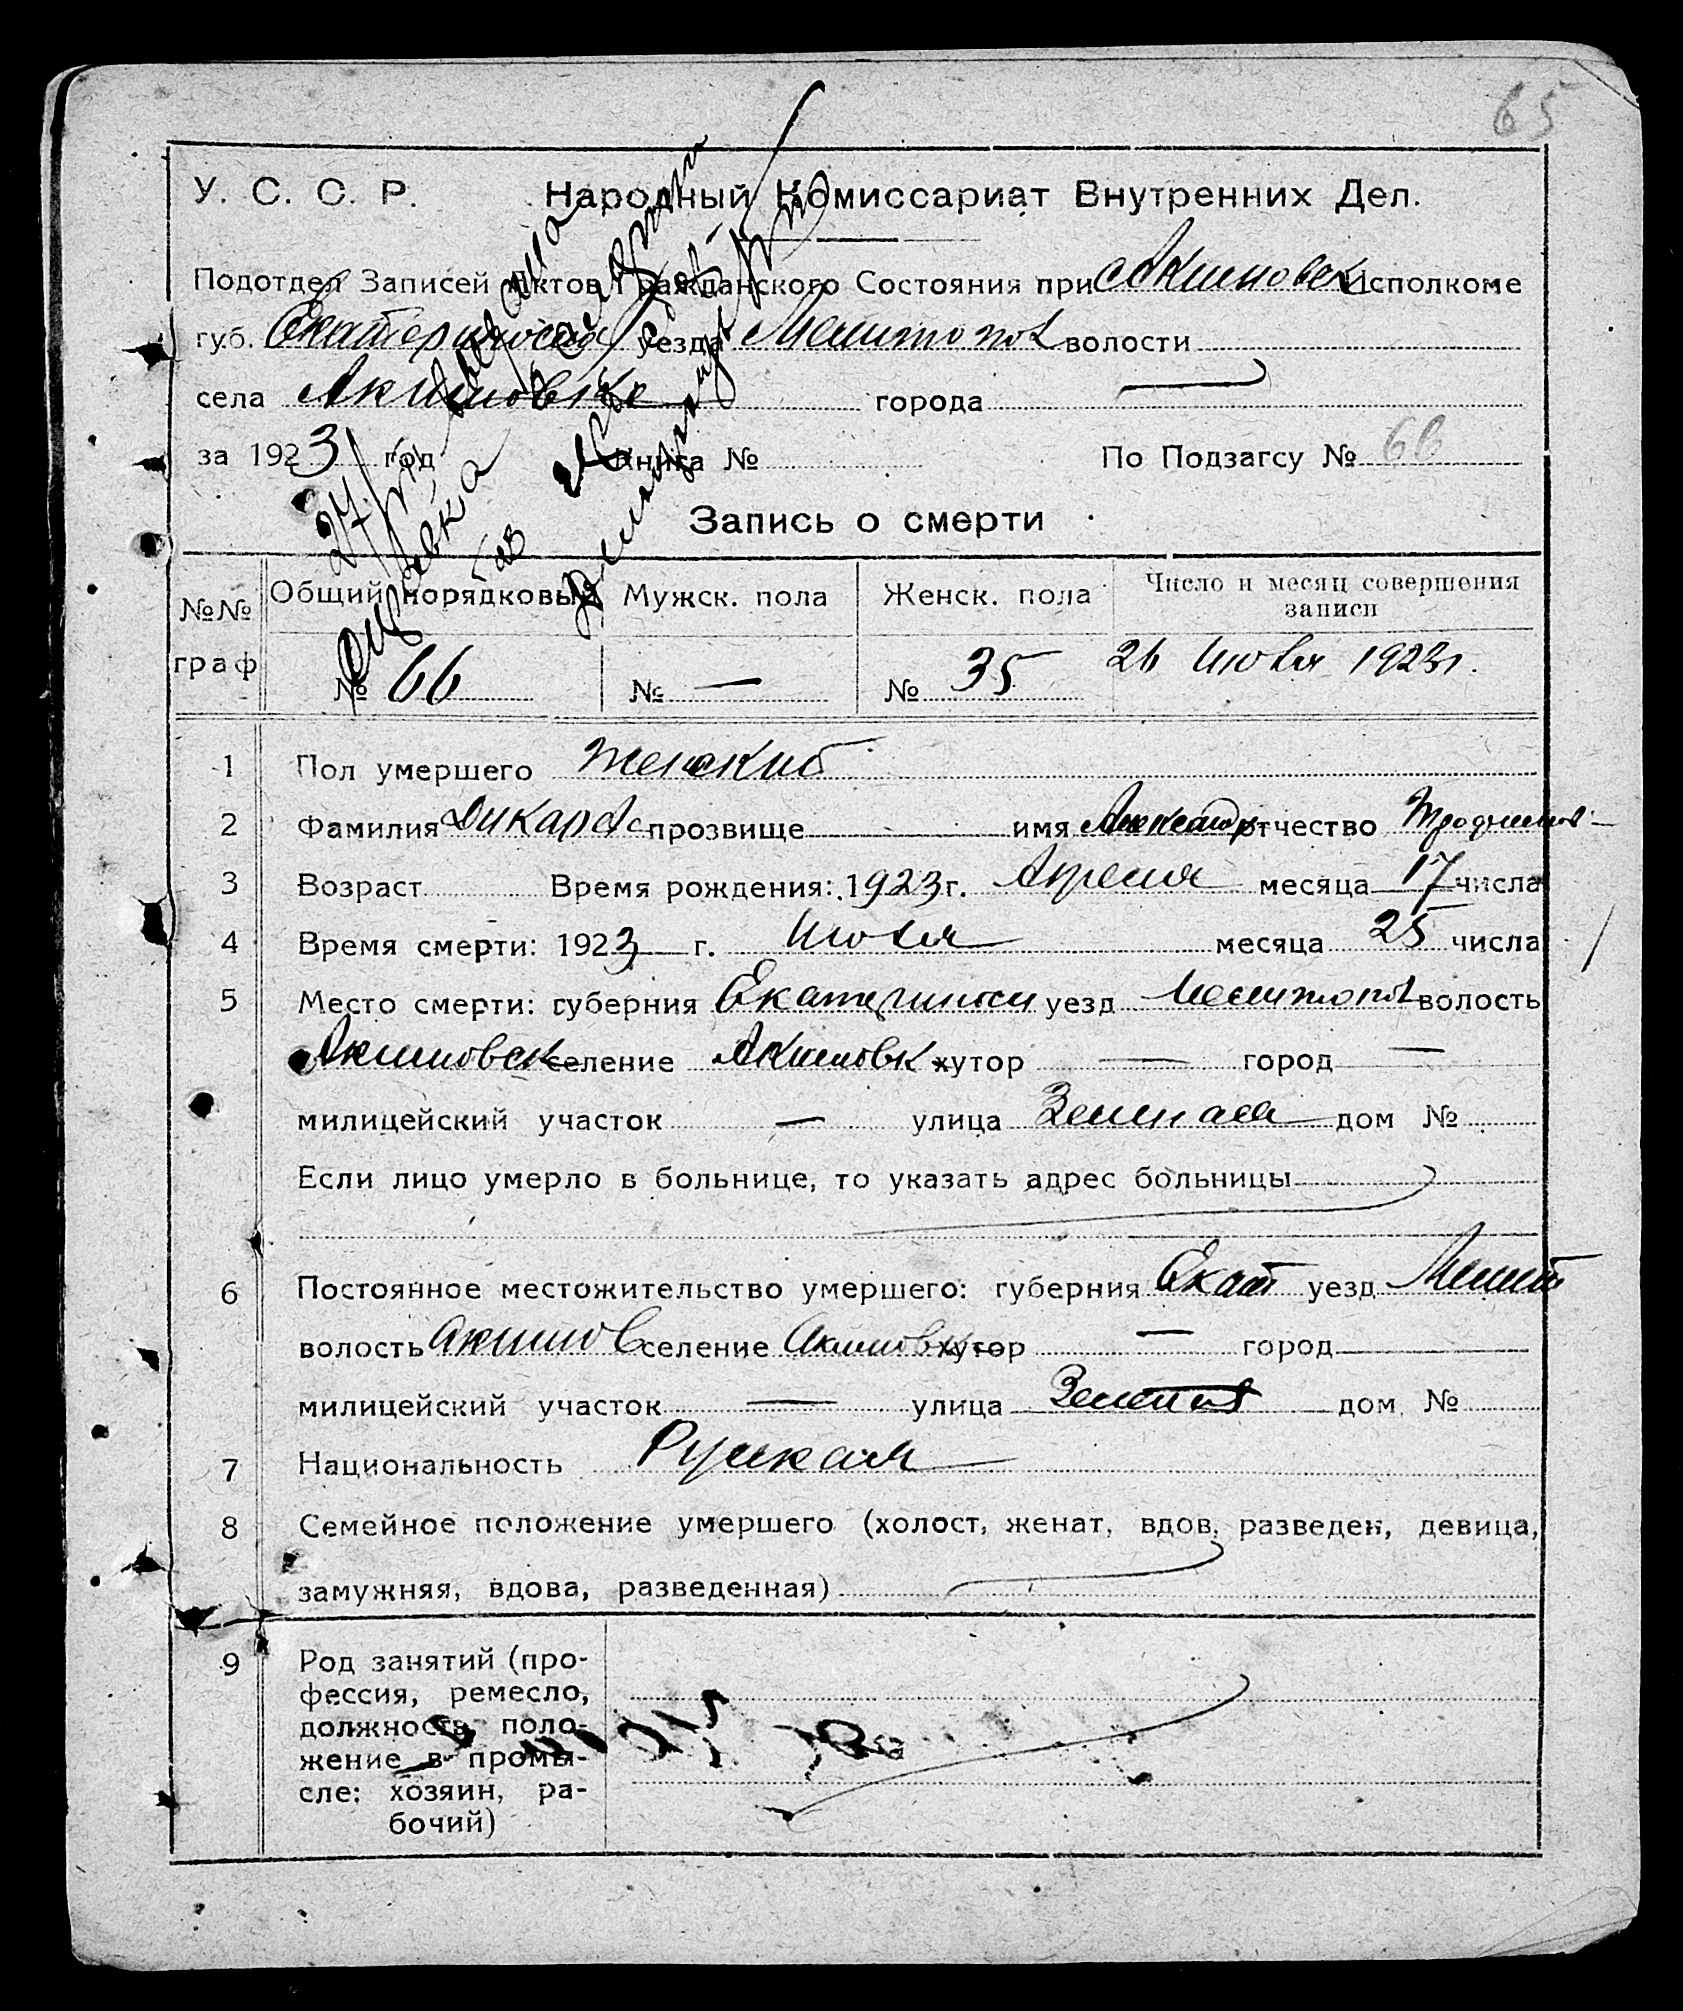 65
У. С. С. Р. Народный Комиссариат Внутренних Дел.
Подотдел Записей Актов Гражданского Состояния при Акимовск Исполкоме
губ. уезда Мелитопол волости
села Акимовке города
за 1923 год Книга № По Подзагсу № 66
Запись о смерти
№№ граф Общий порядковый Мужск. пола Женск. пола Число и месяц совершения записи
№ 66 № — № 35 26 Июля 1923 г.
1 Пол умершего Женский
2 Фамилия прозвище имя Александр отчество
3 Возраст Время рождения: 1923 г. Апреля месяца 17 числа
4 Время смерти: 1923 г. Июля месяца 25 числа
5 Место смерти: губерния Екатеринос уезд Мелитопол волость
Акимовск селение Акимовк хутор — город —
милицейский участок — улица Земная дом №
Если лицо умерло в больнице, то указать адрес больницы
6 Постоянное местожительство умершего: губерния Екат уезд Мелит
волость Акимов селение Акимовк хутор — город
милицейский участок — улица дом №
7 Национальность Русская
8 Семейное положение умершего (холост, женат, вдов, разведен, девица,
замужняя, вдова, разведенная)
9 Род занятий (про-
фессия, ремесло,
должность, поло-
жение в промы-
сле: хозяин, ра-
бочий)